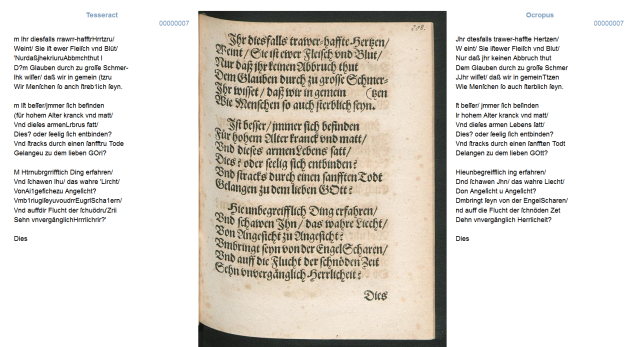 Tesseract
00000007
m Ihr diesfalls rrawrr-hafftrHrrtzru/
Weint/ Sie ilt ewer Fleifch vnd Blüt/
'NurdaßjhekriuruAbbmchthut l
D?m Glauben durch zu groffe Schmer-
Ihk wiffer/ daß wir in gemein (tzru
Wir Menfchen fo anch ftreb1ich feyn.
m ilt beffer/immer fich befinden
(für hohem Alter kranck vnd matt/
Vnd diefes armenLrbrus fatt/
Dies? oder feelig fich entbinden?
Vnd ftracks durch einen fanfftru Tode
Gelangeu zu dem lieben GOri?
M Htrnubrgrrifflich Ding erfahren/
Vnd fchawen ihu/ das wahre 'Lircht/
VonAl1gefichezu Angelicht?
Vmb1riugifeyuvoudrrEugrlScha1ern/
Vnd auffdir Flucht der fchuödru/Zrii
Sehn vnvergänglichHrrrlichrir?'
Dies
208.
Ihr diesfalls trawer-haffte Hertzen/
Weint/ Sie ist ewer Fleisch vnd Blut/
Nur daß jhr keinen Abbruch thut
Dem Glauben durch zu grosse Schmer-
Ihr wisset/ daß wir in gemein (tzen
Wie Menschen so auch sterblich seyn.
Ist besser/ jmmer sich befinden
Für hohem Alter kranck vnd matt/
Vnd dieses armen Lebens satt/
Dies? oder seelig sich entbinden?
Vnd stracks durch einen sanfften Todt
Gelangen zu dem lieben GOtt?
Hie unbegreifflich Ding erfahren/
Vnd schawen Ihn/ das wahre Liecht/
Von Angesicht zu Angesicht?
Vmbringt seyn von der Engel Scharen/
Vnd auff die Flucht der schnöden Zeit
Sehn vnvergänglich Herrlicheit?
Dies
Ocropus
00000007
Jhr dtesfalls trawer-haffte Hertzen/
W eint/ Sie iftewer Fleifch vnd Blut/
Nur daß jhr keinen Abbruch thut
Dem Glauben durch zu groffe Schmer
JJhr wiffet/ daß wir in gemeinTtzen
Wie Menfchen fo auch fterblich feyn.
ft beffer/ jmmer fich befinden
Ir hohem Alter kranck vnd matt/
Vnd diefes arm en Lebens fatt/
Dies? oder feelig fich entbinden?
Vnd ftracks durch einen fanfften Todt
Gelangen zu dem lieben GOtt?
Hieunbegreifflich Ding erfahren/
Dnd fchawen Jhn/ das wahre Liecht/
Don Angelicht u Angelicht?
Dmbringt feyn von der EngelScharen/
nd auff die Flucht der fchnöden Zet
Dehn vnvergänglich Herrlicheit?
Dies